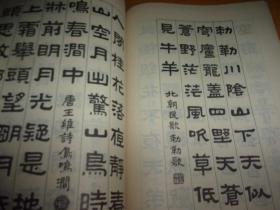 勅勒川陰山下天似
穹廬籠蓋四野天蒼
蒼野茫茫風吹草低
見牛羊
北朝民歌勅勒歌
人閒桂花落夜靜春
山空月出驚山鳥時
鳴春澗中
唐王維詩鳥鳴澗
牀前明月光疑是地
上霜舉頭望明月